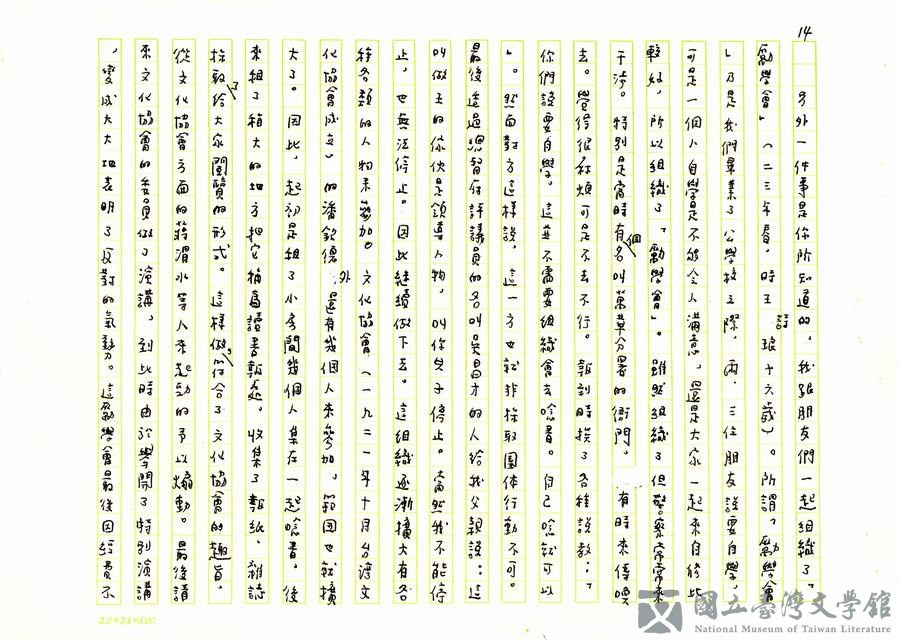 14
另外一件事是你所知道的,我跟朋友們一起組織了「
勵學會」(一二三年春。時王詩琅十六歲)。所謂「勵學會
」乃是我們畢業了公學校之際,兩、三位朋友說要自學,
可是一個人自學是不能令人滿意,還是大家一起來自修比
較好,所以組織了「勵學會」。雖然組織了但警察常常來
干涉。特別是當時有個名叫萬華分署的衙門。 有時來傳喚
去。覺得很麻煩可是不去不行。報到時挨了各種說教:「
你們說要自學。這並不需要組織會去唸書。自己唸就可以
」。然而對方這樣說,這一方也就非採取團体行動不可。
最後透過總督府評議員的名叫吳昌才的人給我父親說:這
叫做王的傢伙是領導人物,叫你兒子停止。當然我不能停
止,也無法停止。因此繼續做下去。這組織逐漸擴大有各
種各類的人物來參加。文化協會(一九二一年十月台灣文
化協會成立)的潘欽德外,還有幾個人來參加,範囲也就擴
大了。因此,起初是租了小房間幾個人集在一起唸書。後
來租了稍大的地方把它稱為讀書報處。收集了報紙、雜誌
採取了給大家閱覽的形式。這樣做,符合了文化協會的趣旨,
從文化協會方面的蔣渭水等人來起勁的予以煽動。最後請
來文化協會的委員做了演講,到此時由於學開了特別演講
,變成大大地表明了反對的氣勢。這勵學會最後因給員不
20×25=500
國立臺灣文學館
National Museum of Taiwan Literature